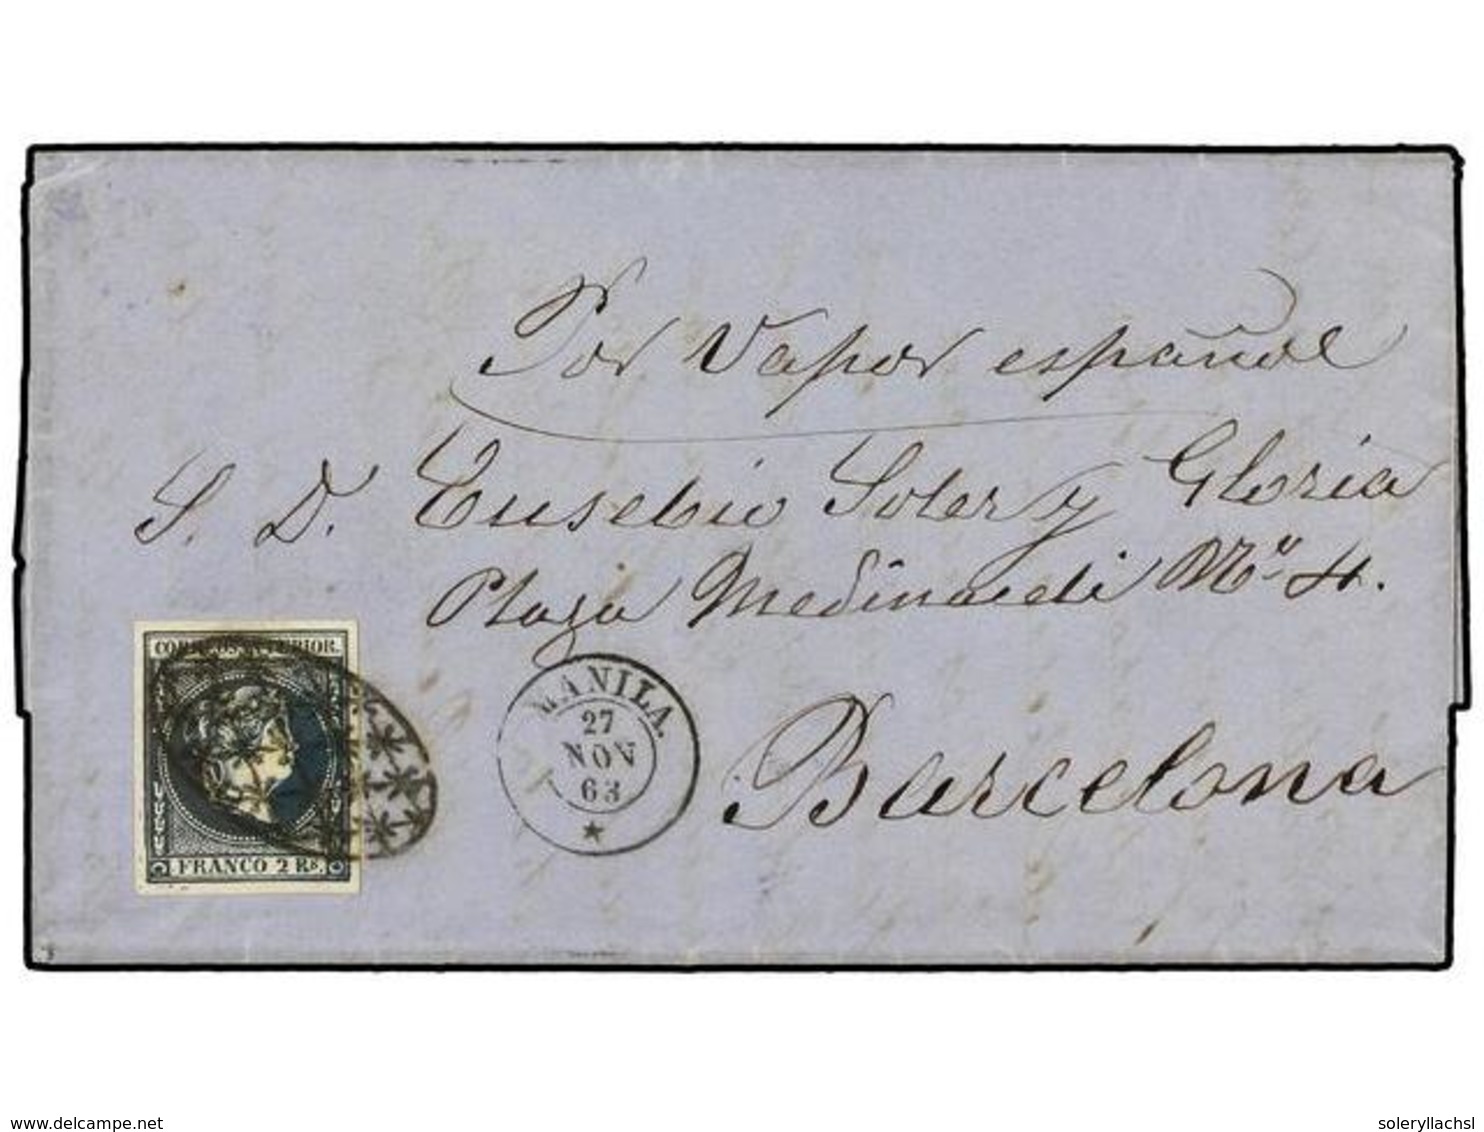 Por Vapor español
S. D. Eusebio Soler y Gloria
Plaza Medinaceli Nº. 4.
Barcelona
CORREOS INTERIOR.
FRANCO 2 Rs.
MANILA.
27
NOV
63
www.delcampe.net
soleryllachsl